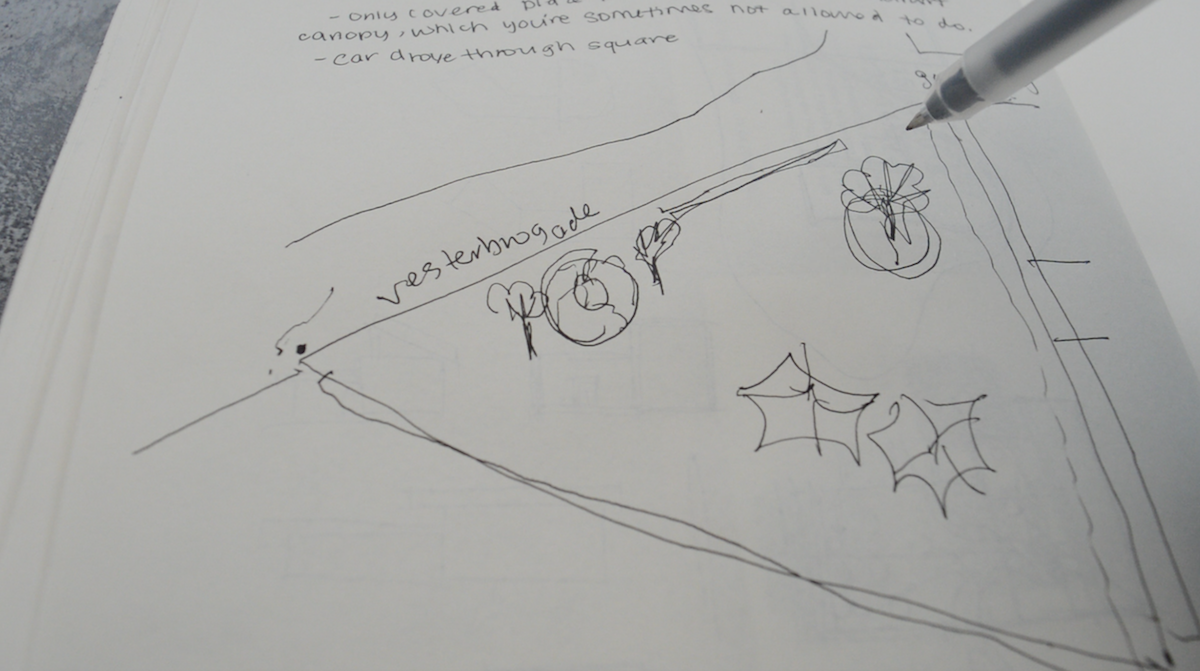 - only covered
canopy, which you're sometimes not allowed to do.
- car drove through square
vesterbrogade